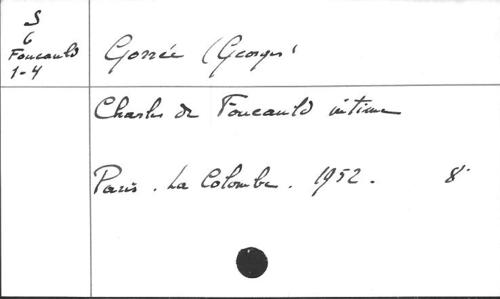 S
6
Foucauld
1-4
Gorrée (Georges)
Charles de Foucauld intime
Paris. La Colombe. 1952. 8°